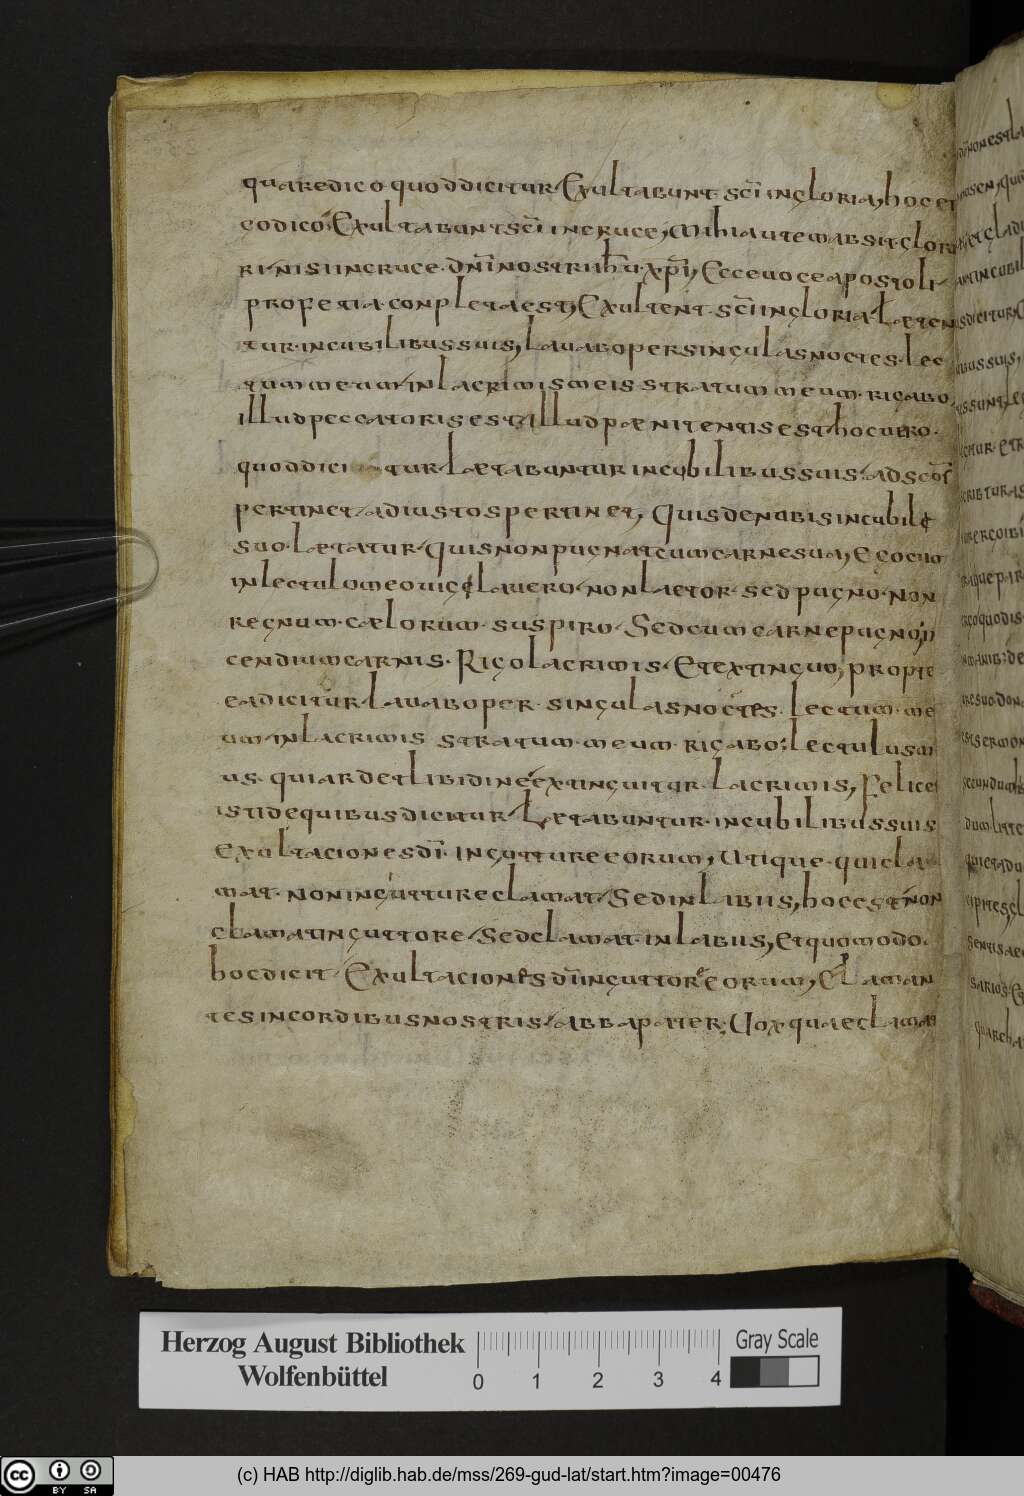 quare dico quod dicitur Exultabunt sc̄i in gloria, hoc et
ego dico Exultabunt sc̄i in cruce, Mihi autem absit glori
ri nisi in cruce dn̄i nostri ih̄u xp̄i, Ecce uoce apostoli
profetia conpleta est, Exultent sc̄i in gloria Læten
tur in cubilibus suis, Lauabo per singulas noctes lec
tum meum in lacrimis meis stratum meum rigabo
illud peccatoris est Illud pænitentis est hoc uero
quod dici tur Lætabuntur in cubilibus suis ad sc̄os
pertinet ad iustos pertinet, Quis de nobis in cubile
suo lætatur Quis non pugnat cum carne sua, Ego cum
in lectulo meo uigelauero non laetor sed pugno Non
regnum cælorum suspiro Sed cum carne pugno in
cendium carnis Rigo lacrimis Et extinguo, propte
ea dicitur Lauabo per singulas noctes Lectum me
um in lacrimis stratum meum rigabo lectulus m
us quia ardet libidine extinguitur lacrimis, Felices
isti de quibus dicitur Letabuntur in cubilibus suis
Exultaciones dī in gutture eorum, Utique qui cla
mat non in gutture clamat Sed in labiis, hoc est non
clamat in guttore Sed clamat in labiis, et quomodo
hoc dicit Exultaciones dī in guttore eorum, Claman
tes in cordibus nostris abba pater Uox quae clamat
Herzog August Bibliothek
Wolfenbüttel
0 1 2 3 4
Gray Scale
cc BY SA
(c) HAB http://diglib.hab.de/mss/269-gud-lat/start.htm?image=00476